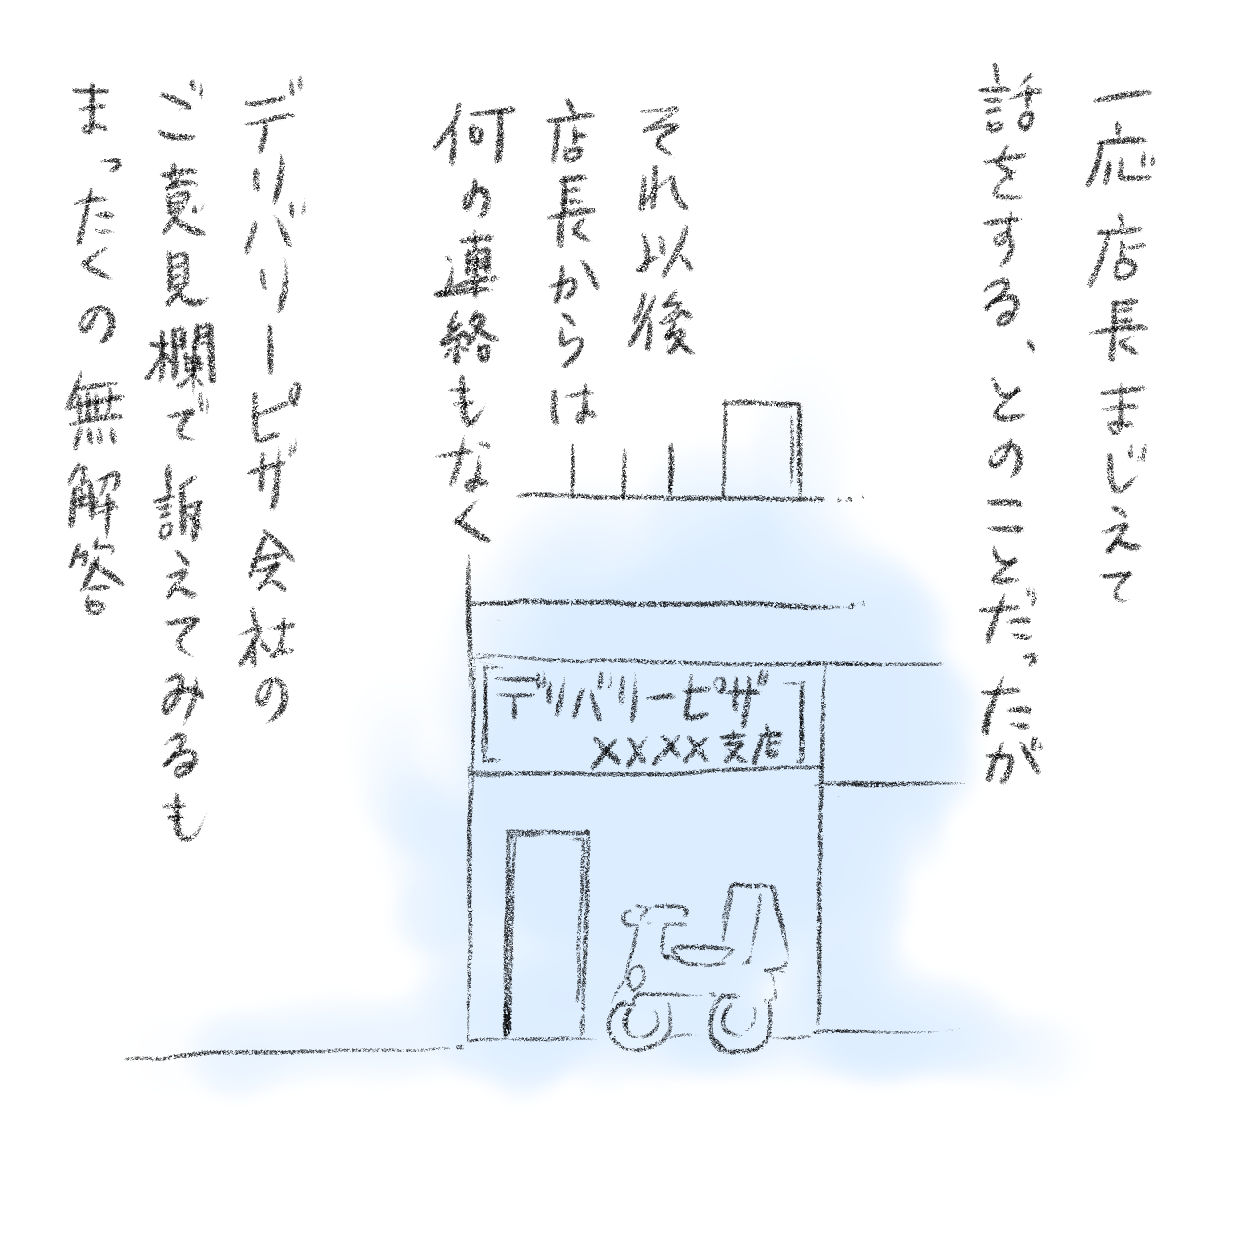 一応店長まじえて
話をする、とのことだったが
それ以後
店長からは
何の連絡もなく
デリバリーピザ会社の
ご意見欄で訴えてみるも
まったくの無解答
デリバリーピザ
××××支店